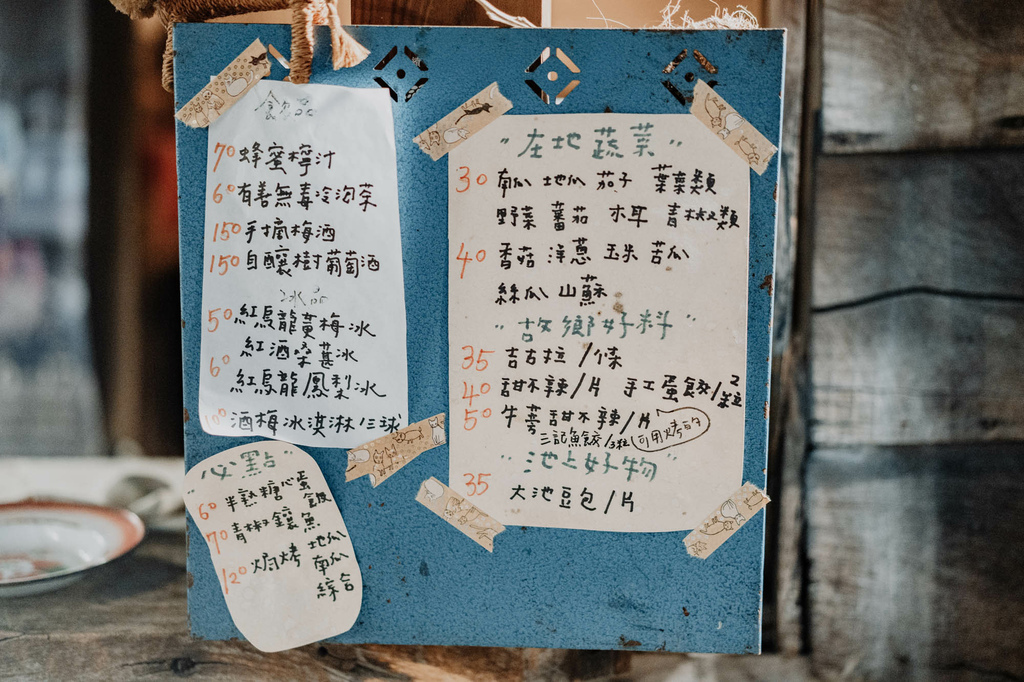 飲品
70 蜂蜜檸汁
60 有善無毒冷泡茶
150 手摘梅酒
150 自釀樹葡萄酒
冰品
50 紅烏龍黃梅冰
紅酒桑葚冰
60
紅烏龍鳳梨冰
100 酒梅冰淇淋/三球
"必點"
60 半熟糖心蛋飯
70 青椒鑲魚
120 焗烤 地瓜
南瓜
綜合
"在地蔬菜"
30 南瓜 地瓜 茄子 葉菜類
野菜 蕃茄 木耳 青椒類
40 香菇 洋蔥 玉米 苦瓜
絲瓜 山蘇
"故鄉好料"
35 吉古拉/條
40 甜不辣/片 手工蛋餃/2粒
50 牛蒡甜不辣/片
三記魚餃/3粒 可用烤的
"池上好物"
35 大池豆包/片